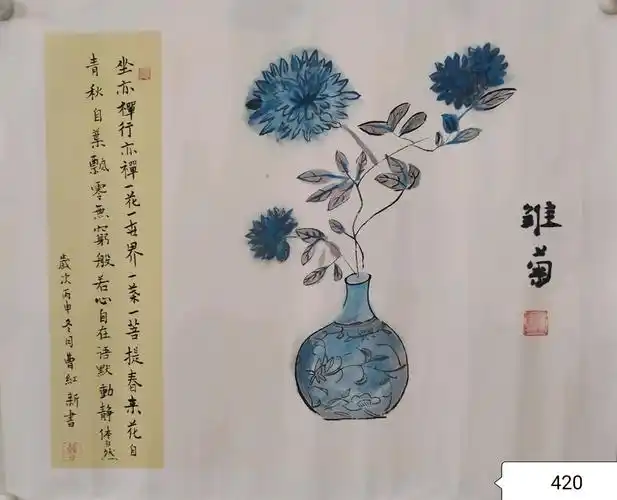 坐亦禪行亦禪一花一世界一葉一菩提春来花自
青秋自葉飄零無窮般若心自在语默動静体自然
歲次丙申冬月曹紅新書
雅菊
420